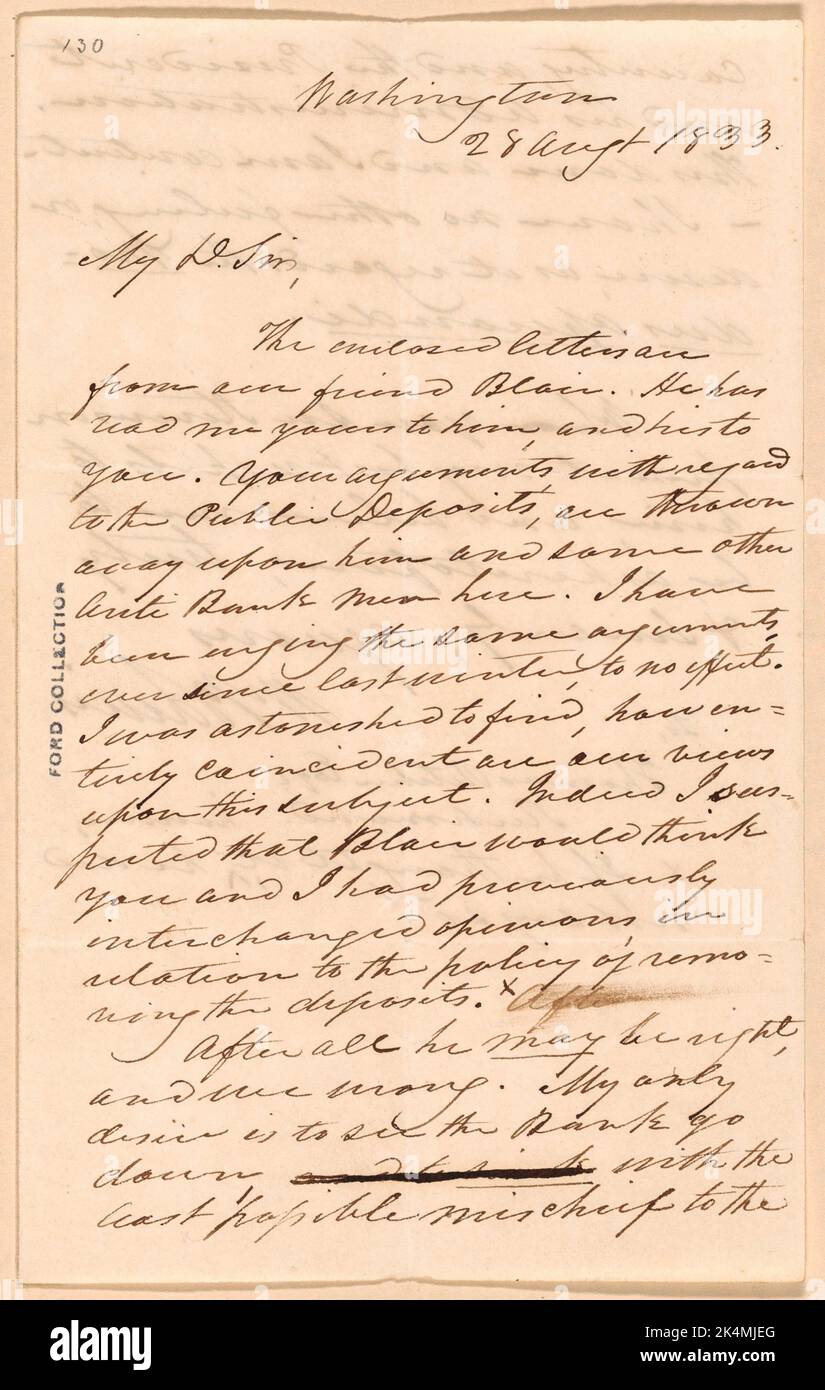 130
Washington
28 Augt 1833.
My D. Sir,
The enclosed letters are
from our friend Blair. He has
read me yours to him, and his to
you. Your arguments, with regard
to the Public Deposits, are thrown
away upon him and some other
Anti Bank men here. I have
been urging the same arguments,
ever since last winter, to no effect.
I was astonished to find, how en=
tirely coincident are our views
upon this subject. Indeed I sus=
pected that Blair would think
you and I had previously
interchanged opinions, in
relation to the policy of remo=
ving the deposits. x Afte
After all he may be right,
and we wrong. My only
desire is to see the Bank go
down with the
least possible mischief to the
FORD COLLECTION
alamy
Image ID: 2K4MJEG
www.alamy.com